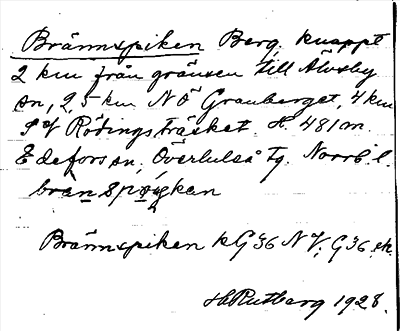 Brännspiken Berg, knappt
2 km från gränsen till Älvsby
sn, 2,5 km NÖ Granberget, 4 km
SV Rödingsträsket. H. 481 m.
Edefors sn, Överluleå tg. Norrb. l.
brän spik̄an
Brännspiken kG36 NV; G36. ek.
H. Rutberg 1928.